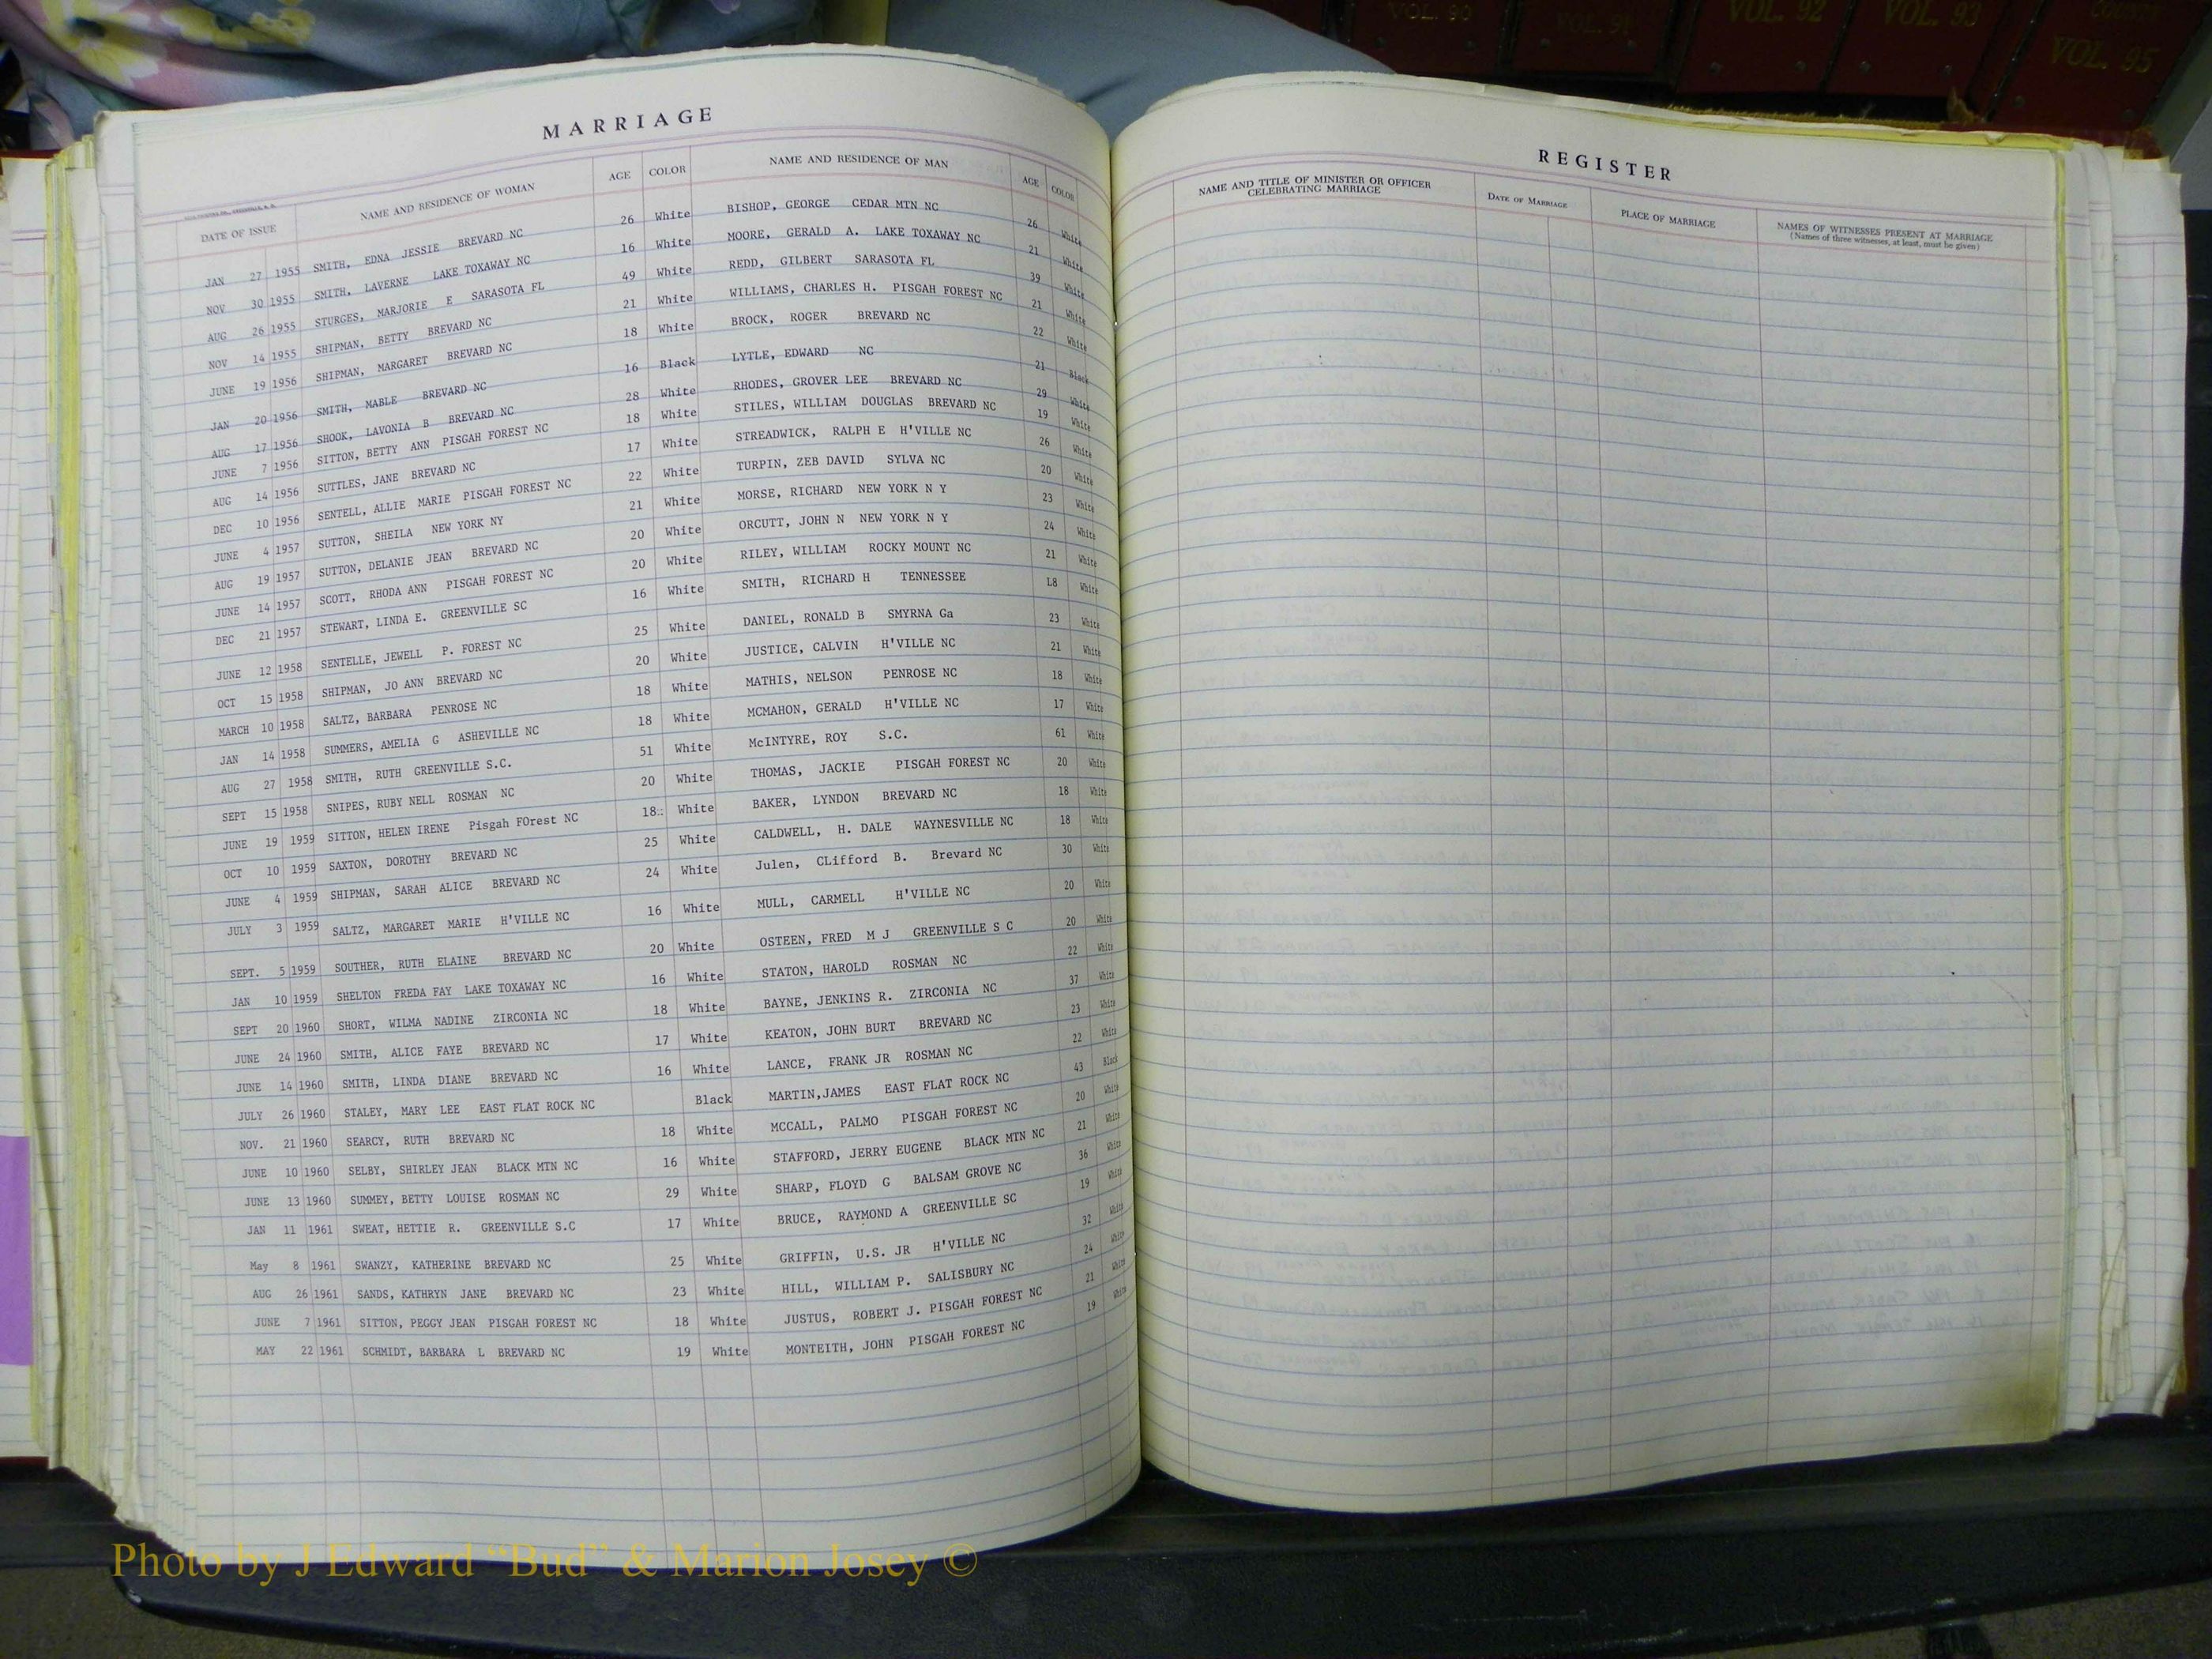 VOL. 90 VOL. 91 VOL. 92 VOL. 93 COUNTY VOL. 95
MARRIAGE
DATE OF ISSUE NAME AND RESIDENCE OF WOMAN AGE COLOR NAME AND RESIDENCE OF MAN AGE COLOR
JAN 27 1955 SMITH, EDNA JESSIE BREVARD NC 26 White BISHOP, GEORGE CEDAR MTN NC 26 White
NOV 30 1955 SMITH, LAVERNE LAKE TOXAWAY NC 16 White MOORE, GERALD A. LAKE TOXAWAY NC 21 White
AUG 26 1955 STURGES, MARJORIE E SARASOTA FL 49 White REDD, GILBERT SARASOTA FL 39 White
NOV 14 1955 SHIPMAN, BETTY BREVARD NC 21 White WILLIAMS, CHARLES H. PISGAH FOREST NC 21 White
JUNE 19 1956 SHIPMAN, MARGARET BREVARD NC 18 White BROCK, ROGER BREVARD NC 22 White
JAN 20 1956 SMITH, MABLE BREVARD NC 16 Black LYTLE, EDWARD NC 21 Black
AUG 17 1956 SHOOK, LAVONIA B BREVARD NC 28 White RHODES, GROVER LEE BREVARD NC 29 White
JUNE 7 1956 SITTON, BETTY ANN PISGAH FOREST NC 18 White STILES, WILLIAM DOUGLAS BREVARD NC 19 White
AUG 14 1956 SUTTLES, JANE BREVARD NC 17 White STREADWICK, RALPH E H'VILLE NC 26 White
DEC 10 1956 SENTELL, ALLIE MARIE PISGAH FOREST NC 22 White TURPIN, ZEB DAVID SYLVA NC 20 White
JUNE 4 1957 SUTTON, SHEILA NEW YORK NY 21 White MORSE, RICHARD NEW YORK N Y 23 White
AUG 19 1957 SUTTON, DELANIE JEAN BREVARD NC 20 White ORCUTT, JOHN N NEW YORK N Y 24 White
JUNE 14 1957 SCOTT, RHODA ANN PISGAH FOREST NC 20 White RILEY, WILLIAM ROCKY MOUNT NC 21 White
DEC 21 1957 STEWART, LINDA E. GREENVILLE SC 16 White SMITH, RICHARD H TENNESSEE L8 White
JUNE 12 1958 SENTELLE, JEWELL P. FOREST NC 25 White DANIEL, RONALD B SMYRNA Ga 23 White
OCT 15 1958 SHIPMAN, JO ANN BREVARD NC 20 White JUSTICE, CALVIN H'VILLE NC 21 White
MARCH 10 1958 SALTZ, BARBARA PENROSE NC 18 White MATHIS, NELSON PENROSE NC 18 White
JAN 14 1958 SUMMERS, AMELIA G ASHEVILLE NC 18 White MCMAHON, GERALD H'VILLE NC 17 White
AUG 27 1958 SMITH, RUTH GREENVILLE S.C. 51 White McINTYRE, ROY S.C. 61 White
SEPT 15 1958 SNIPES, RUBY NELL ROSMAN NC 20 White THOMAS, JACKIE PISGAH FOREST NC 20 White
JUNE 19 1959 SITTON, HELEN IRENE Pisgah FOrest NC 18 White BAKER, LYNDON BREVARD NC 18 White
OCT 10 1959 SAXTON, DOROTHY BREVARD NC 25 White CALDWELL, H. DALE WAYNESVILLE NC 18 White
JUNE 4 1959 SHIPMAN, SARAH ALICE BREVARD NC 24 White Julen, CLifford B. Brevard NC 30 White
JULY 3 1959 SALTZ, MARGARET MARIE H'VILLE NC 16 White MULL, CARMELL H'VILLE NC 20 White
SEPT. 5 1959 SOUTHER, RUTH ELAINE BREVARD NC 20 White OSTEEN, FRED M J GREENVILLE S C 20 White
JAN 10 1959 SHELTON FREDA FAY LAKE TOXAWAY NC 16 White STATON, HAROLD ROSMAN NC 22 White
SEPT 20 1960 SHORT, WILMA NADINE ZIRCONIA NC 18 White BAYNE, JENKINS R. ZIRCONIA NC 37 White
JUNE 24 1960 SMITH, ALICE FAYE BREVARD NC 17 White KEATON, JOHN BURT BREVARD NC 23 White
JUNE 14 1960 SMITH, LINDA DIANE BREVARD NC 16 White LANCE, FRANK JR ROSMAN NC 22 White
JULY 26 1960 STALEY, MARY LEE EAST FLAT ROCK NC Black MARTIN,JAMES EAST FLAT ROCK NC 43 Black
NOV. 21 1960 SEARCY, RUTH BREVARD NC 18 White MCCALL, PALMO PISGAH FOREST NC 20 White
JUNE 10 1960 SELBY, SHIRLEY JEAN BLACK MTN NC 16 White STAFFORD, JERRY EUGENE BLACK MTN NC 21 White
JUNE 13 1960 SUMMEY, BETTY LOUISE ROSMAN NC 29 White SHARP, FLOYD G BALSAM GROVE NC 36 White
JAN 11 1961 SWEAT, HETTIE R. GREENVILLE S.C 17 White BRUCE, RAYMOND A GREENVILLE SC 19 White
May 8 1961 SWANZY, KATHERINE BREVARD NC 25 White GRIFFIN, U.S. JR H'VILLE NC 32 White
AUG 26 1961 SANDS, KATHRYN JANE BREVARD NC 23 White HILL, WILLIAM P. SALISBURY NC 24 White
JUNE 7 1961 SITTON, PEGGY JEAN PISGAH FOREST NC 18 White JUSTUS, ROBERT J. PISGAH FOREST NC 21 White
MAY 22 1961 SCHMIDT, BARBARA L BREVARD NC 19 White MONTEITH, JOHN PISGAH FOREST NC 19 White
REGISTER
NAME AND TITLE OF MINISTER OR OFFICER CELEBRATING MARRIAGE DATE OF MARRIAGE PLACE OF MARRIAGE NAMES OF WITNESSES PRESENT AT MARRIAGE
(Names of three witnesses, at least, must be given)
Photo by J Edward “Bud” & Marion Josey ©